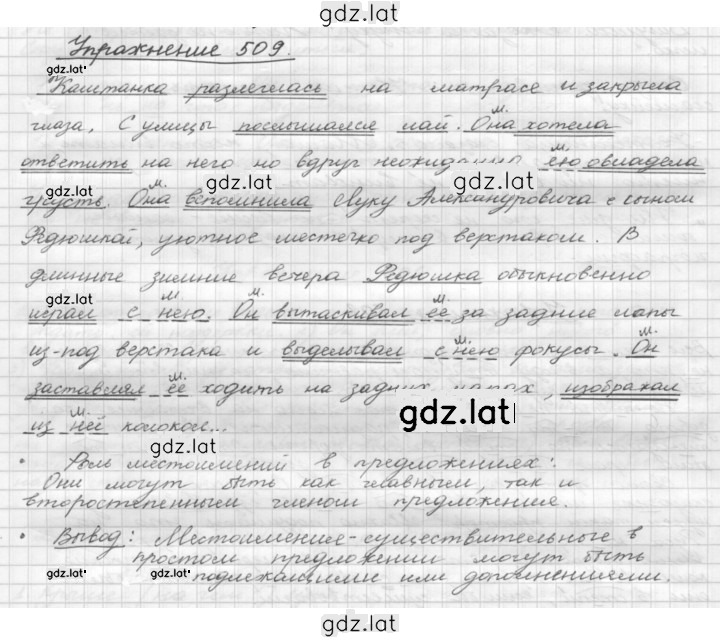 gdz.lat
Упражнение 509.
gdz.lat
Каштанка разлеглась на матрасе и закрыла
глаза. С улицы послышался лай. Она хотела
ответить на него но вдруг неожиданно ею овладела
gdz.lat gdz.lat
грусть. Она вспомнила Луку Александровича с сыном
Федюшкой, уютное местечко под верстаком. В
длинные зимние вечера Федюшка обыкновенно
играл с нею. Он вытаскивал её за задние лапы
из-под верстака и выделывал с нею фокусы. Он
заставлял её ходить на задних лапах, изображал
из ней колокол...
gdz.lat
gdz.lat
• Роль местоимений в предложениях:
Они могут быть как главным, так и
второстепенным членом предложения.
• Вывод: Местоимения-существительные в
простом предложении могут быть
gdz.lat gdz.lat подлежащими или дополнениями.
gdz.lat